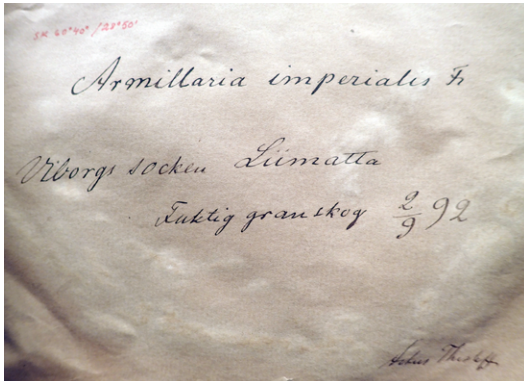 SK 60°40' / 28°50'
Armillaria imperialis Fr
Viborgs socken Liimatta
Fuktig granskog 2/9 92
Thesleff